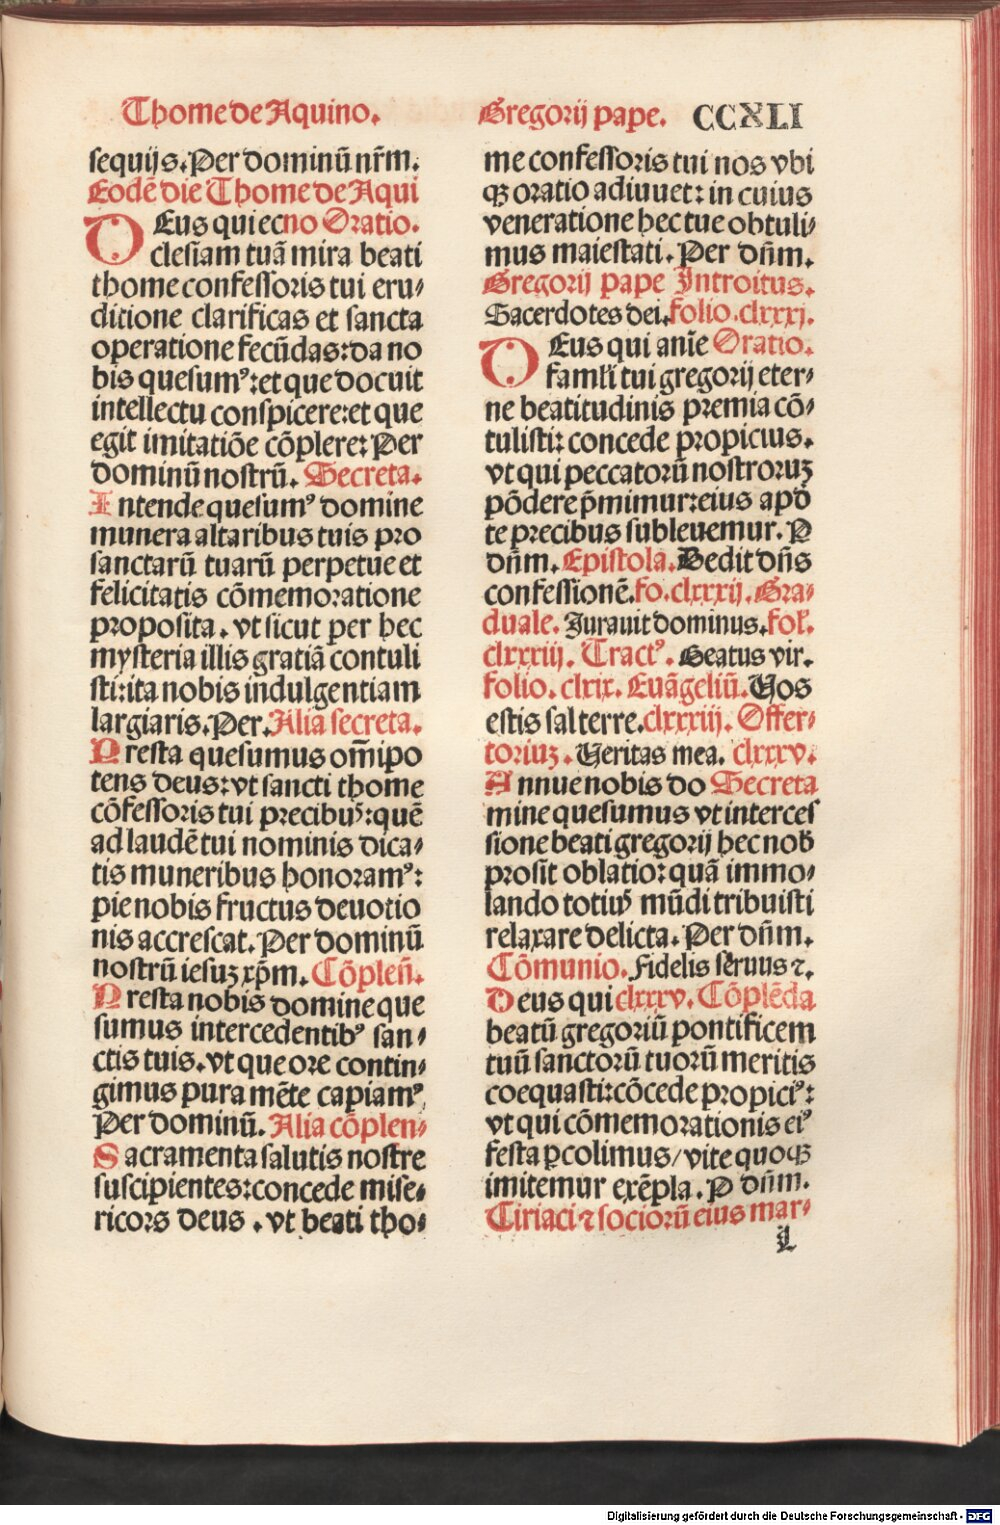 Thome de Aquino. Gregorij pape. CCXLI
sequijs. Per dominū nr̄m.
Eodē die Thome de Aqui
DEus qui ecno Oratio.
clesiam tuā mira beati
thome confessoris tui eru⸗
ditione clarificas et sancta
operatione fecūdas: da no
bis quesumꝰ: et que docuit
intellectu conspicere: et que
egit imitatiōe cōplere: Per
dominū nostrū. Secreta.
Intende quesumꝰ domine
munera altaribus tuis pro
sanctarū tuarū perpetue et
felicitatis cōmemoratione
proposita. vt sicut per hec
mysteria illis gratiā contuli
sti: ita nobis indulgentiam
largiaris. Per. Alia secreta.
Presta quesumus om̄ipo
tens deus: vt sancti thome
cōfessoris tui precibꝰ: quē
ad laudē tui nominis dica⸗
tis muneribus honoramꝰ:
pie nobis fructus deuotio
nis accrescat. Per dominū
nostrū iesuꝫ xp̄m. Cōpleñ.
Presta nobis domine que
sumus intercedentibꝰ san⸗
ctis tuis. vt que ore contin⸗
gimus pura mēte capiamꝰ
Per dominū. Alia cōplen⸗
Sacramenta salutis nostre
suscipientes: concede mise⸗
ricors deus. vt beati tho⸗
me confessoris tui nos vbi
qꝫ oratio adiuuet: in cuius
veneratione hec tue obtuli⸗
mus maiestati. Per dn̄m.
Gregorij pape Introitus.
Sacerdotes dei. folio. clxxxj.
DEus qui anīe Oratio.
famłi tui gregorij eter⸗
ne beatitudinis premia cō⸗
tulisti: concede propicius.
vt qui peccatorū nostroruꝫ
pōdere p̄mimur: eius apō
te precibus subleuemur. P
dn̄m. Epistola. Dedit dn̄s
confessionē. fo. clxxxij. Gra⸗
duale. Jurauit dominus. fol.
clxxxiij. Tractꝰ. Beatus vir.
folio. clxix. Euāgeliū. Uos
estis sal terre. clxxxiij. Offer⸗
toriuꝫ. Ueritas mea. clxxxv.
Annue nobis do Secreta
mine quesumus vt interces
sione beati gregorij hec nob̄
prosit oblatio: quā immo⸗
lando totiꝰ mūdi tribuisti
relaxare delicta. Per dn̄m.
Cōmunio. Fidelis seruus ⁊.
Deus qui clxxxv. Cōplēda
beatū gregoriū pontificem
tuū sanctorū tuorū meritis
coequasti: cōcede propiciꝰ:
vt qui cōmemorationis eiꝰ
festa ꝑcolimus/ vite quoqꝫ
imitemur exēpla. P dn̄m.
Ciriaci ⁊ sociorū eius mar⸗
L
Digitalisierung gefördert durch die Deutsche Forschungsgemeinschaft - DFG